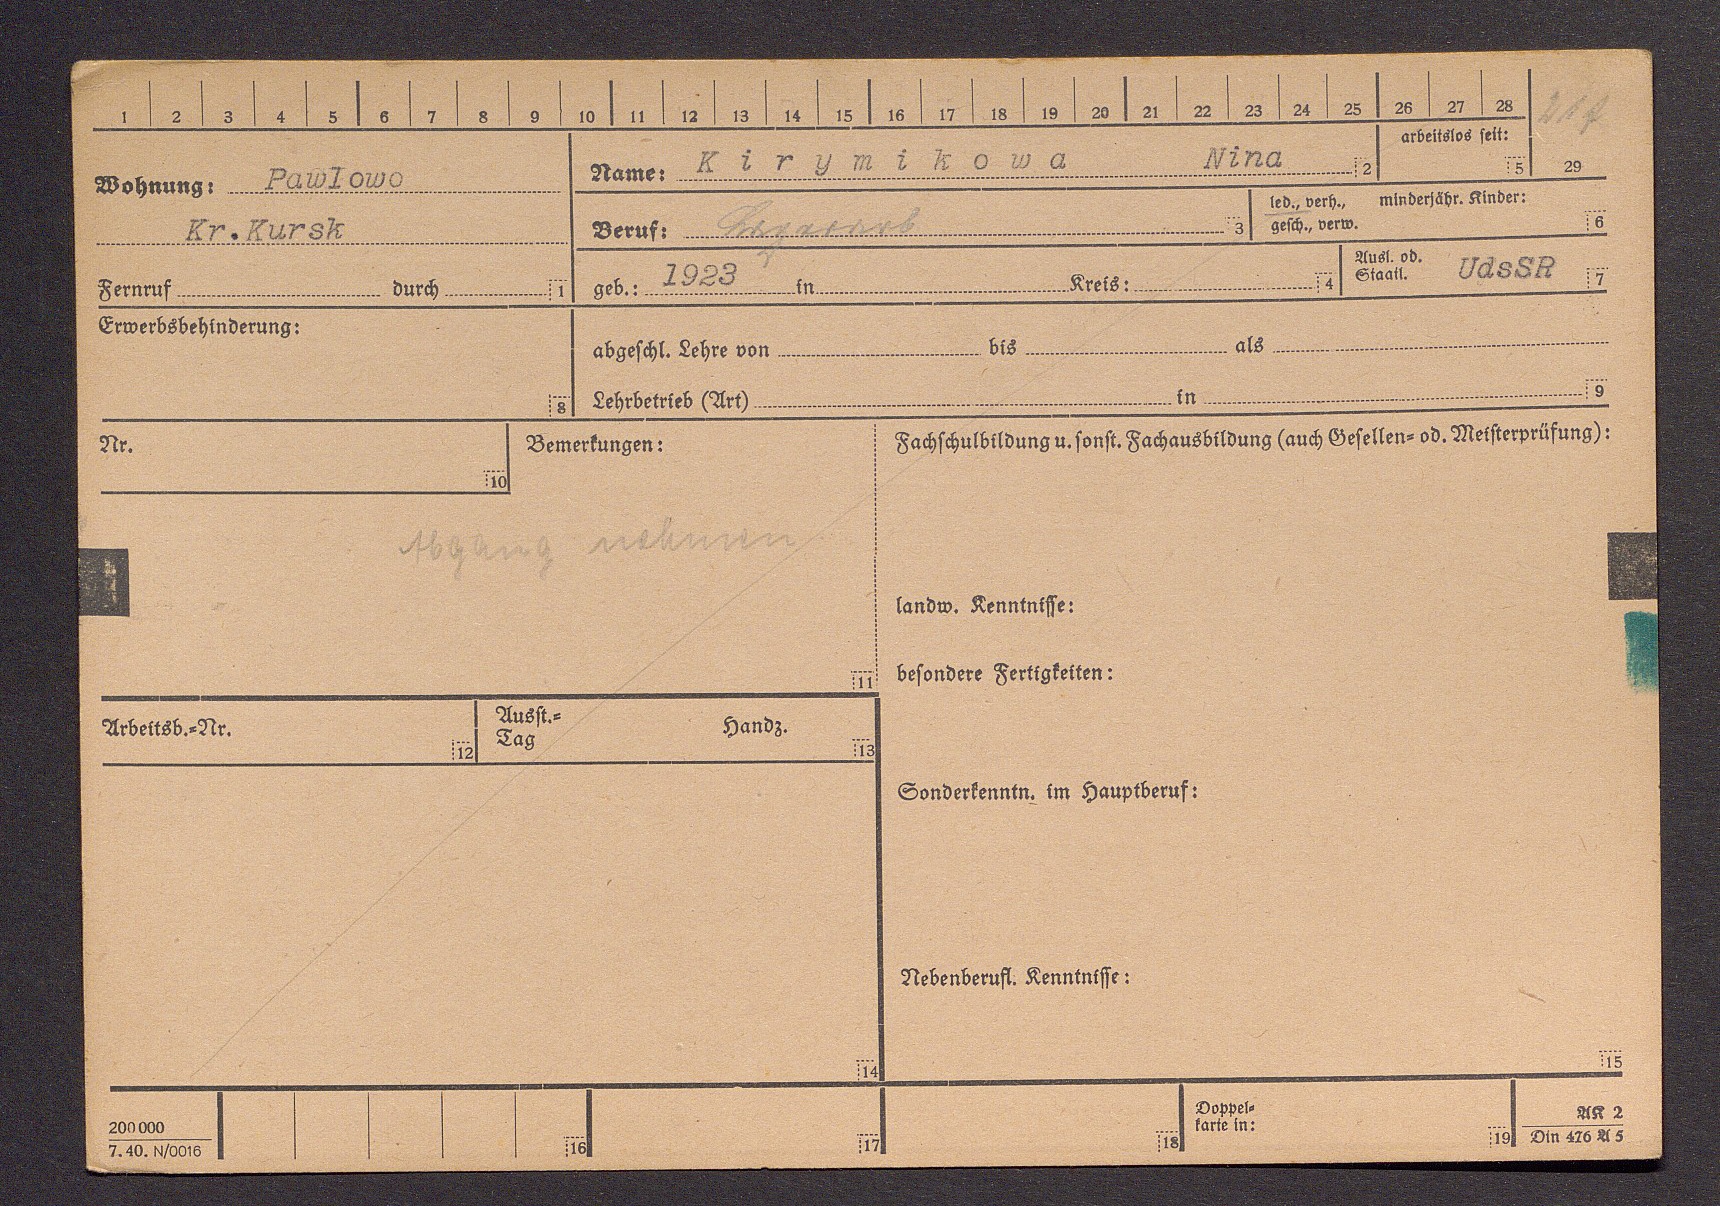 1 2 3 4 5 6 7 8 9 10 11 12 13 14 15 16 17 18 19 20 21 22 23 24 25 26 27 28
29
Wohnung: Pawlowo
Kr.Kursk
Fernruf durch 1
Name: Kirymikowa Nina 2
arbeitslos seit:
5
Beruf: 3
led., verh., minderjähr. Kinder:
gesch., verw. 6
geb.: 1923 in Kreis: 4
Ausl. od.
Staatl. UdsSR 7
Erwerbsbehinderung:
8
abgeschl. Lehre von bis als
Lehrbetrieb (Art) in 9
Nr.
10
Bemerkungen:
Abgang nehmen
11
Fachschulbildung u. sonst. Fachausbildung (auch Gesellen- od. Meisterprüfung):
landw. Kenntnisse:
besondere Fertigkeiten:
Arbeitsb.-Nr. 12
Ausst.-
Tag Handz. 13
Sonderkenntn. im Hauptberuf:
Nebenberufl. Kenntnisse:
14
15
200 000
7. 40. N/0016
16 17 18
Doppel-
karte in: 19
AK 2
Din 476 A 5